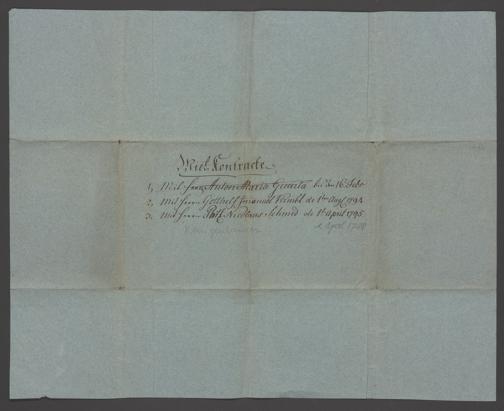 Mieth Kontracte
1, Mit Herrn Antoni Maria Guaita bis den 16 Febr
2, Mit Herrn Gotthelf Imanuel de 1ten Augt 1794
3. Mit Herrn Nicolaus Schmid de 1t April 1795
April